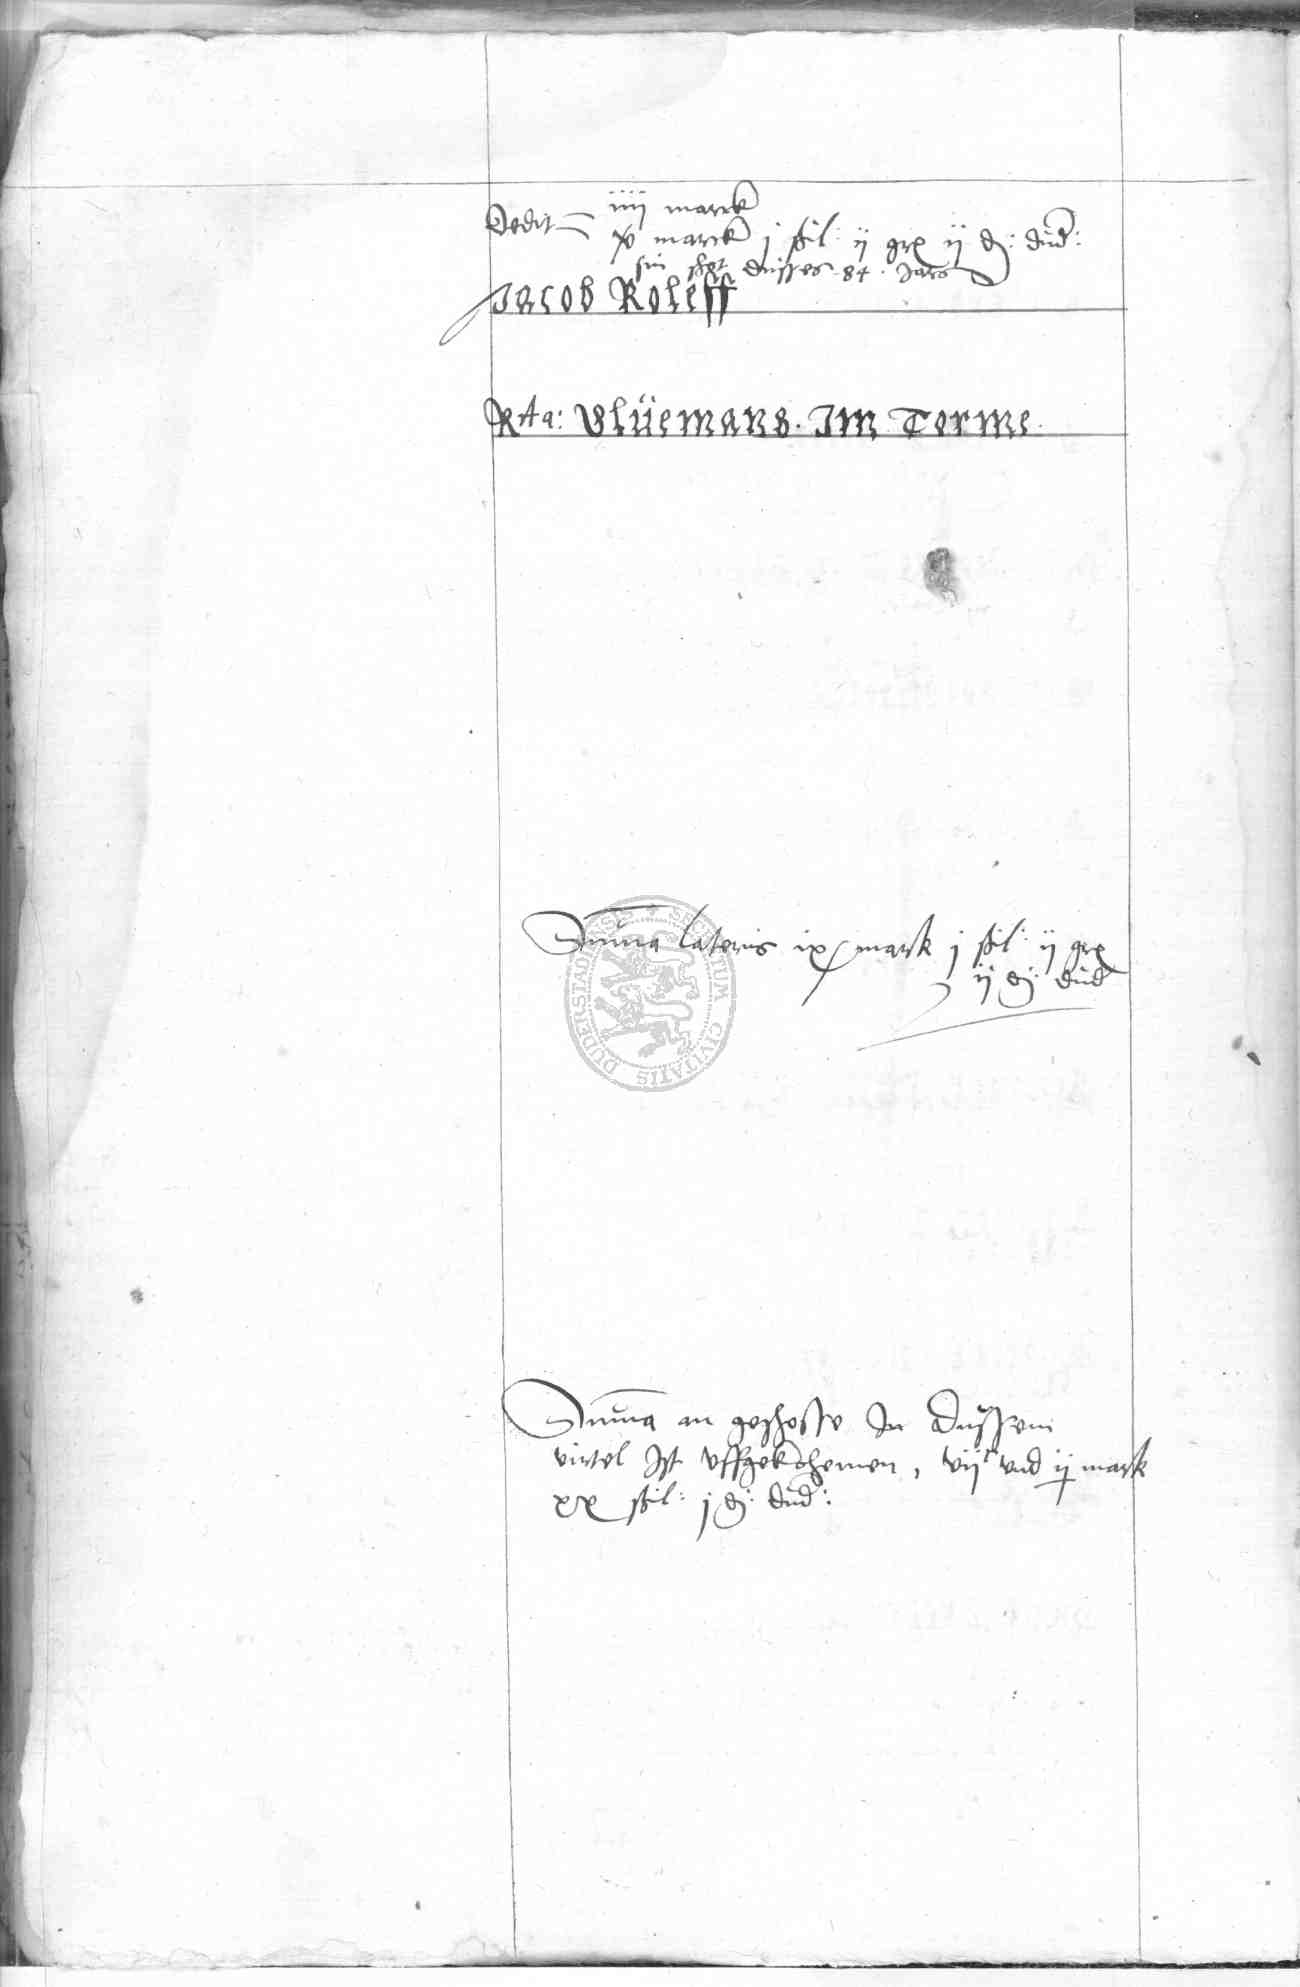 iiij marck
Dedit v marck j ßil: ij grx ij d: dud:
sin schot dusses 84. Jars
Jacob Roleff
Rta: Vlüemans. Im Torme.
Summa lateris ix mark j ßil: ij grx
ij d: dud
Summa an geschosse In dussem
virtel Ist uffgekohemen, vijc und ij mark
xx ßil: j d: dud:
SECRETUM CIVITATIS DUDERSTADENSIS